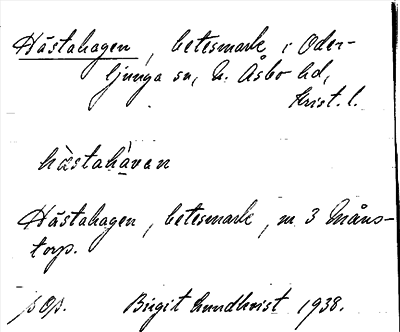 Hästahagen, betesmark i Oder-
ljunga sn, N. Åsbo hd,
Krist. l.
hästahàvan
Hästahagen, betesmark, m 3 Måns-
torp.
Birgit Lundkvist 1938.